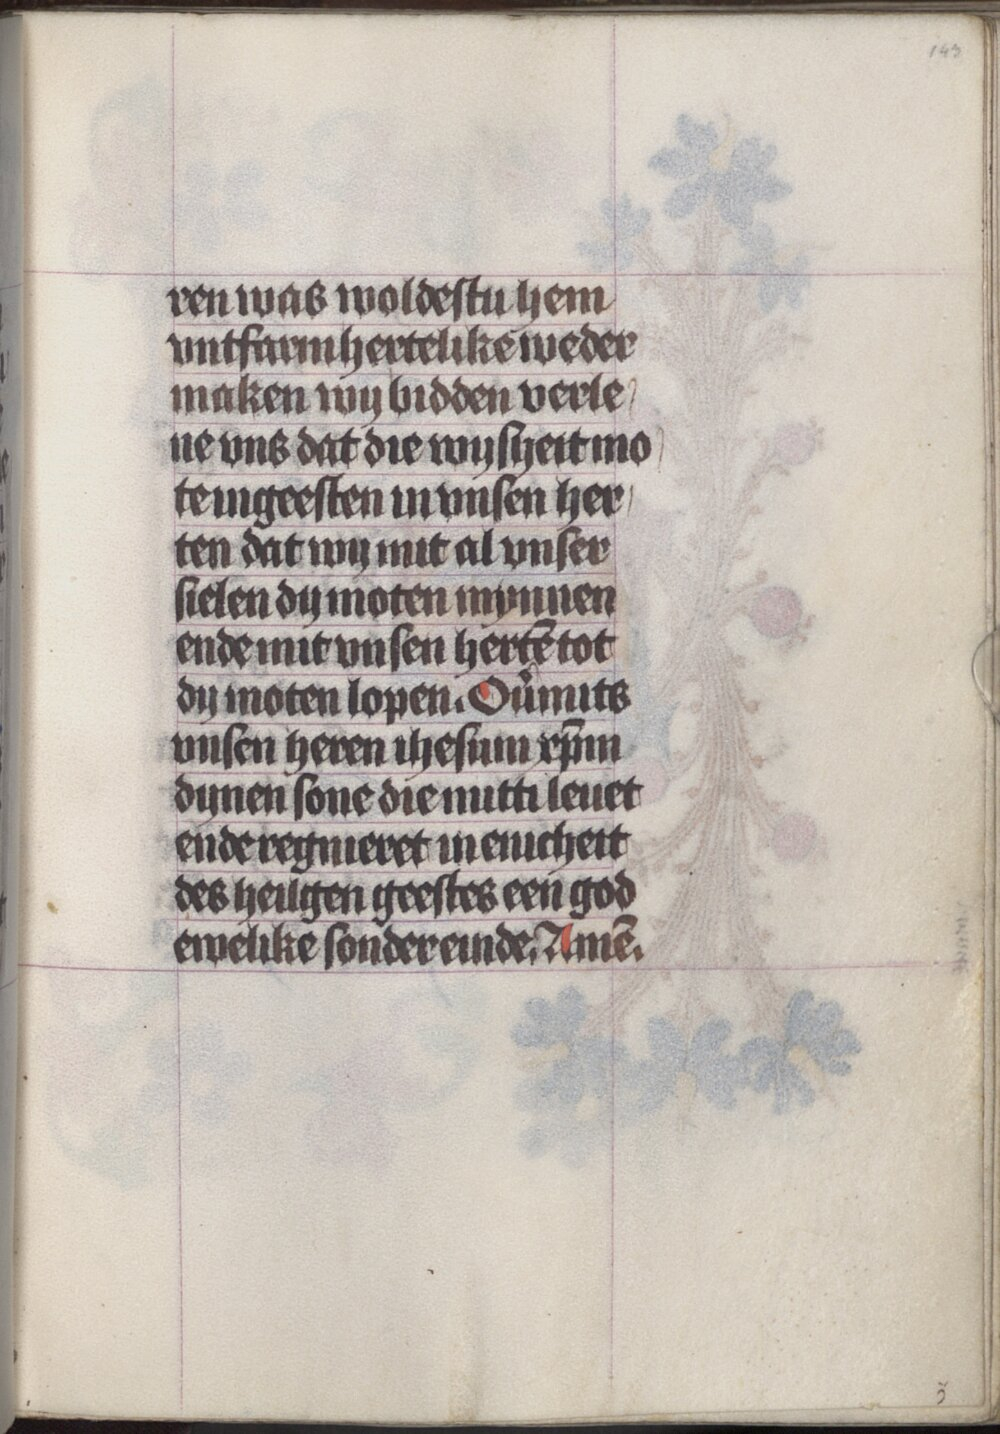 143
ren was woldestu hem
vntfarmhertelike weder
maken wy bidden verle
ne vns dat die wysheit mo
te ingeesten in vnsen her
ten dat wy mit al vnser
sielen dy moten mynnen
ende mit vnsen hertē tot
dy moten lopen. Ou̅mits
vnsen heren ihesum xp̄m
dynen sone die mitti leuet
ende regnieret in enicheit
des heilgen geestes een god
ewelike sonder einde. Amē.